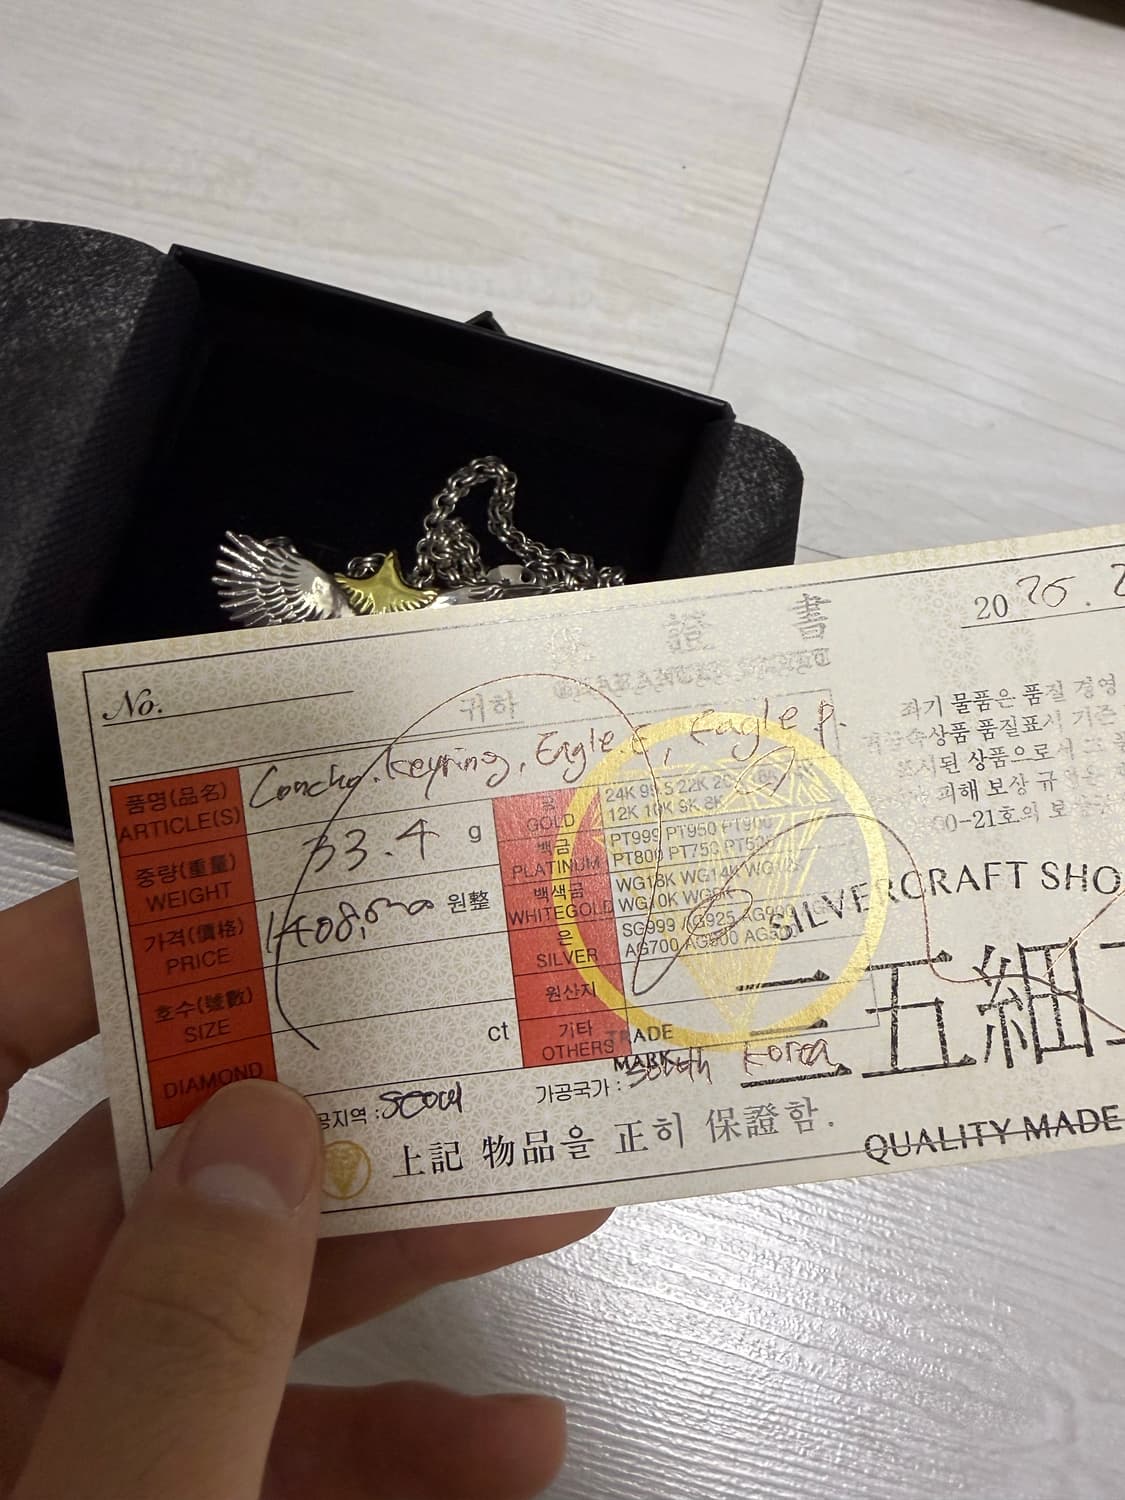 證 書
2026.
No.
귀하
품명(品名)
ARTICLE(S)
Concho.keyring, Eagle.E, Eagle p.
중량(重量)
WEIGHT
33.4 g
가격(價格)
PRICE
1408,000 원整
호수(號數)
SIZE
DIAMOND
ct
금
GOLD
24K 99.5 22K 20 18K
12K 10K 9K 8K
백금
PLATINUM
PT999 PT950 PT900
PT800 PT750
백색금
WHITEGOLD
WG18K WG14K
WG10K WG9K
은
SILVER
SG999 AG925
AG700 AG600
원산지
기타
OTHERS
TRADE
MARK
공지역 : Seoul
가공국가 : South Korea
上記 物品을 正히 保證함.
좌기 물품은 품질 경영
금속상품 품질표시 기준
표시된 상품으로서
피해 보상 규
60-21호의 보
SILVERCRAFT SHO
三五細工
QUALITY MADE